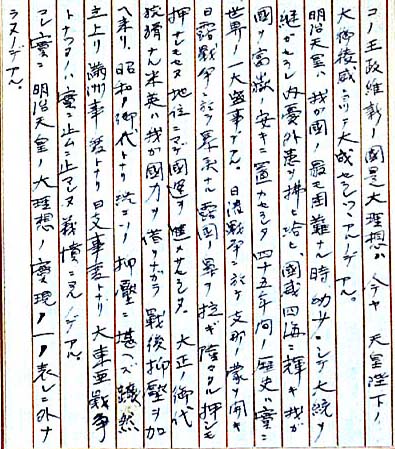 コノ王政維新ノ国是大理想ガ今ヤ 天皇陛下ノ
大御稜威ニヨリテ大成セラレツヽアルノデアル。
明治天皇ハ我ガ国ノ最モ困難ナル時幼少ニシテ大統ヲ
継ガセラレ内憂外患ヲ拂ヒ給ヒ、國威四海ニ輝キ我ガ
國ヲ富嶽ノ安キニ置カセラレタ四十五年間ノ歴史ハ實ニ
世界ノ一大盛事デアル 日清戦争ニ於テ支那ノ蒙ヲ開キ
日露戦争ニ於テ暴戻ナル露國ノ鼻ヲ挫ギ隆々タル押シモ
押サレモセヌ地位ニマデ國運ヲ進メサセラレタ。大正ノ御代
狡猾ナル米英ハ我ガ國力ヲ借リナガラ戰後抑壓ヲ加
ヘ来リ、昭和ノ御代トナリ次ニソノ抑壓ニ堪ヘズ蹶然
立上リ満洲事変トナリ日支事変トナリ大東亜戰争
トナツタノハ實ニ止ムニ止マレヌ義憤ニ見ルノデアル。
コレ實ニ 明治天皇ノ大理想ノ實現ノ一ノ表レニ外ナ
ラヌノデアル。